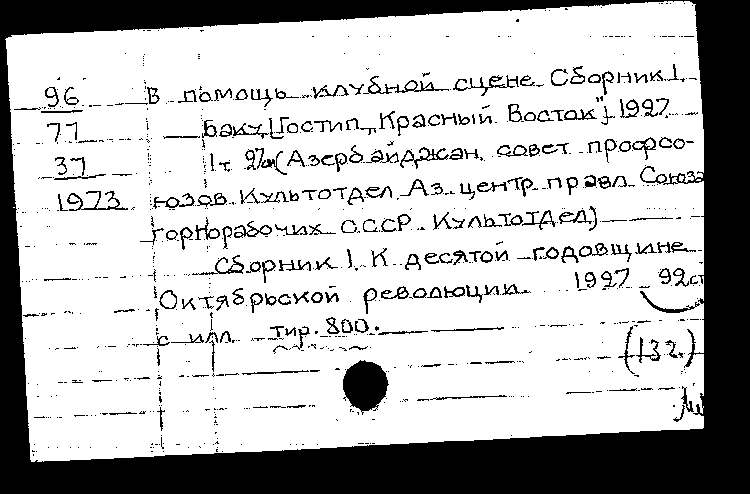 96 В помощь клубной сцене Сборник 1.
77 Баку, [Гостип. „Красный Восток"] 1927
37 1 т 27см (Азербайджан. совет профсо-
1973 юзов. Культотдел. Аз. центр. правл. Союза
горнорабочих СССР. Культотдел)
Сборник 1. К десятой годовщине
Октябрьской революции. 1927 92 ст
с илл. тир. 800.
(132.)